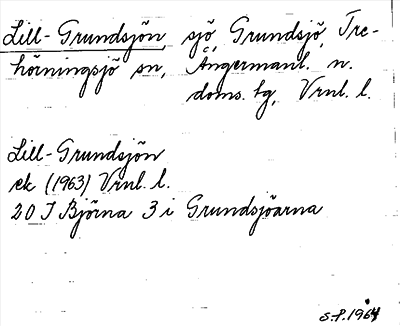 Lill-Grundsjön sjö, Grundsjö, Tre-
hörningsjö sn, Ångermanl. n.
doms. tg, Vrnl. l.
Lill-Grundsjön
ek (1963) Vrnl. l.
20 I Björna 3 i Grundsjöarna
S.P. 1964